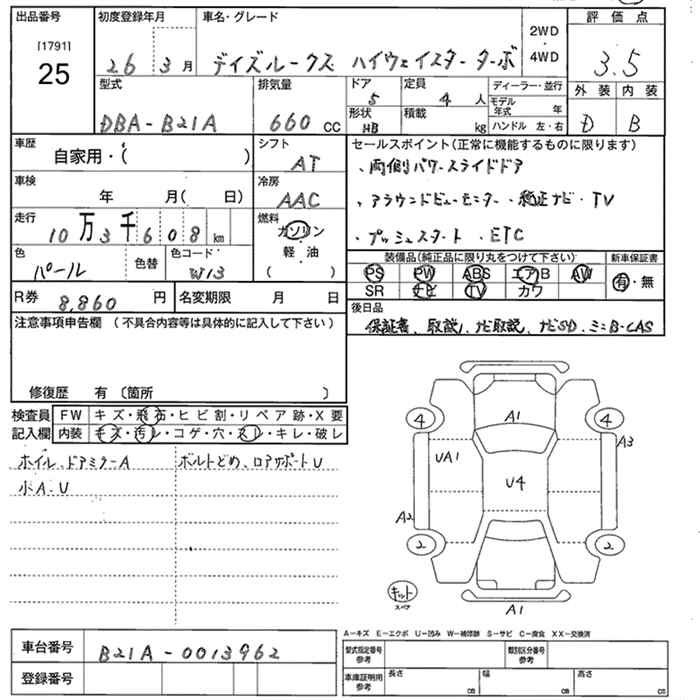 出品番号 初度登録年月 車名・グレード 2WD 評価点
[1791] 25 26 3 月 デイズルークス ハイウェイスター ターボ ・4WD 3.5
型式 排気量 ドア 定員 ディーラー・並行 外装 内装
DBA-B21A 660 CC 5 4 人 モデル年式 年 D B
形状 積載 HB kg ハンドル 左・右
車歴 自家用・( ) シフト AT セールスポイント(正常に機能するものに限ります)
・両側パワースライドドア
車検 年 月( 日) 冷房 AAC ・アラウンドビューモニター ・純正ナビ・TV
走行 10万3千608 km 燃料 ガソリン ・プッシュスタート ・ETC
軽・油
( )
色 パール 色替 色コード W13 装備品(純正品に限り丸をつけて下さい) 新車保証書
PS PW ABS エアB AW 有・無
SR ナビ TV カワ
R券 8,860 円 名変期限 月 日 後日品
保証書、取説、ナビ取説、ナビSD、ミニB-CAS
注意事項申告欄 (不具合内容等は具体的に記入して下さい)
修復歴 有 〔箇所 〕
検査員 FW キズ・飛石・ヒビ割・リペア跡・X要
記入欄 内装 キズ・汚レ・コゲ・穴・スレ・キレ・破レ
ホイル、ドアミラーA ボルトどめ、ロアサポートU
小A、U
A1
4 4
A3
UA1
U4
A2
2 2
キット
スペア
A1
A-キズ E-エクボ U-凹み W-補修跡 S-サビ C-腐食 XX-交換済
車台番号 B21A-0013962 型式指定番号 参考 類別区分番号 参考
登録番号 車庫証明用 参考 長さ cm 幅 cm 高さ cm